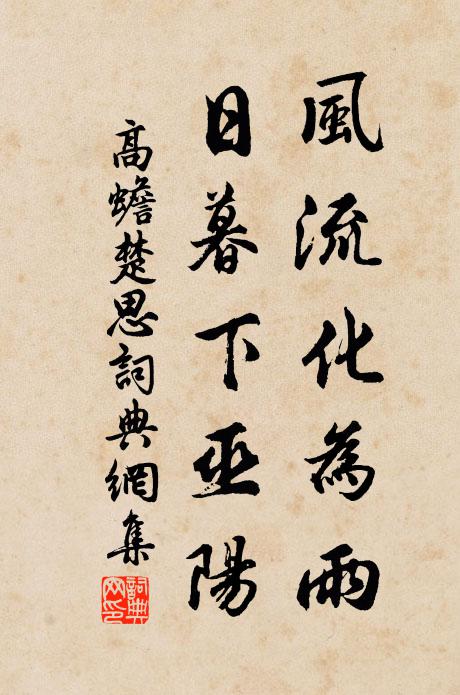 風流化為雨
日暮下巫陽
高蟾楚思詞典網集
詞典網印